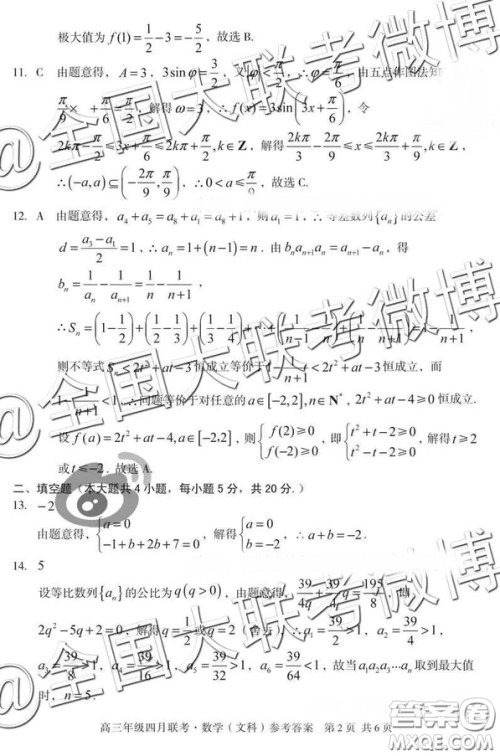 极大值为 f(1)=1/2-3=-5/2，故选 B.
11. C 由题意得，A=3，3sinφ=3/2，又 <φ<π/2，∴φ=π/6，由五点作图法知
π/9× +π/6=π/2，解得ω=3，∴f(x)=3sin(3x+π/6)，令
2kπ-π/2≤3x+π/6≤2kπ+π/2,k∈Z，解得 2kπ/3-2π/9≤x≤2kπ/3+π/9,k∈Z，
∴(-a,a)⊆(-2π/9,π/9)，∴0<a≤π/9，故选 C.
12. A 由题意得，a₄+a₅=a₈+a₁=a₈+1，则a₁=1，∴等差数列{aₙ}的公差
d=(a₃-a₁)/2=1，∴aₙ=1+(n-1)=n．由bₙaₙaₙ₊₁=aₙ₊₁-aₙ，得
bₙ=1/aₙ-1/aₙ₊₁=1/n-1/(n+1)，
∴Sₙ=(1-1/2)+(1/2-1/3)+(1/3-1/4)+⋯+(1/n-1/(n+1))=1-1/(n+1)，
则不等式Sₙ<2t²+at-3恒成立等价于1-1/(n+1)<2t²+at-3恒成立，而
1-1/(n+1)<1，∴问题等价于对任意的a∈[-2,2],n∈N*，2t²+at-4≥0恒成立.
设 f(a)=2t²+at-4,a∈[-2,2]，则{f(2)≥0 f(-2)≥0，即{t²+t-2≥0 t²-t-2≥0，解得t≥2
或t≤-2．故选 A.
二、填空题（本大题共 4 小题，每小题 5 分，共 20 分.）
13. -2
由题意得，{a=0 -1+b+2b+7=0，解得{a=0 b=-2，∴a+b=-2.
14. 5
设等比数列{aₙ}的公比为q(q>0)，由题意得，39/4q+39/4=195/8，即
2q²-5q+2=0，解得q=1/2或q=2（舍去），∴a₁=39/2>1，a₂=39/4>1，
a₃=39/8>1，a₄=39/16>1，a₅=39/32>1，a₆=39/64<1，故当a₁a₂a₃⋯aₙ取到最大值
时，n=5.
高三年级四月联考·数学（文科）参考答案 第 2 页 共 6 页
@全国大联考微博
@全国大联考微博
@全国大联考微博